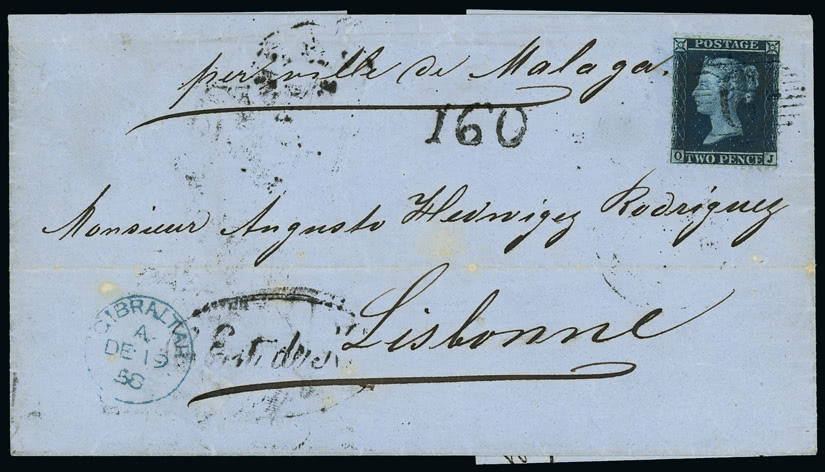 POSTAGE
per ville de Malaga.
160
O TWO PENCE J
Monsieur Augusto Hedwiges Rodriguez
GIBRALTAR
A
DE 19
Lisbonne